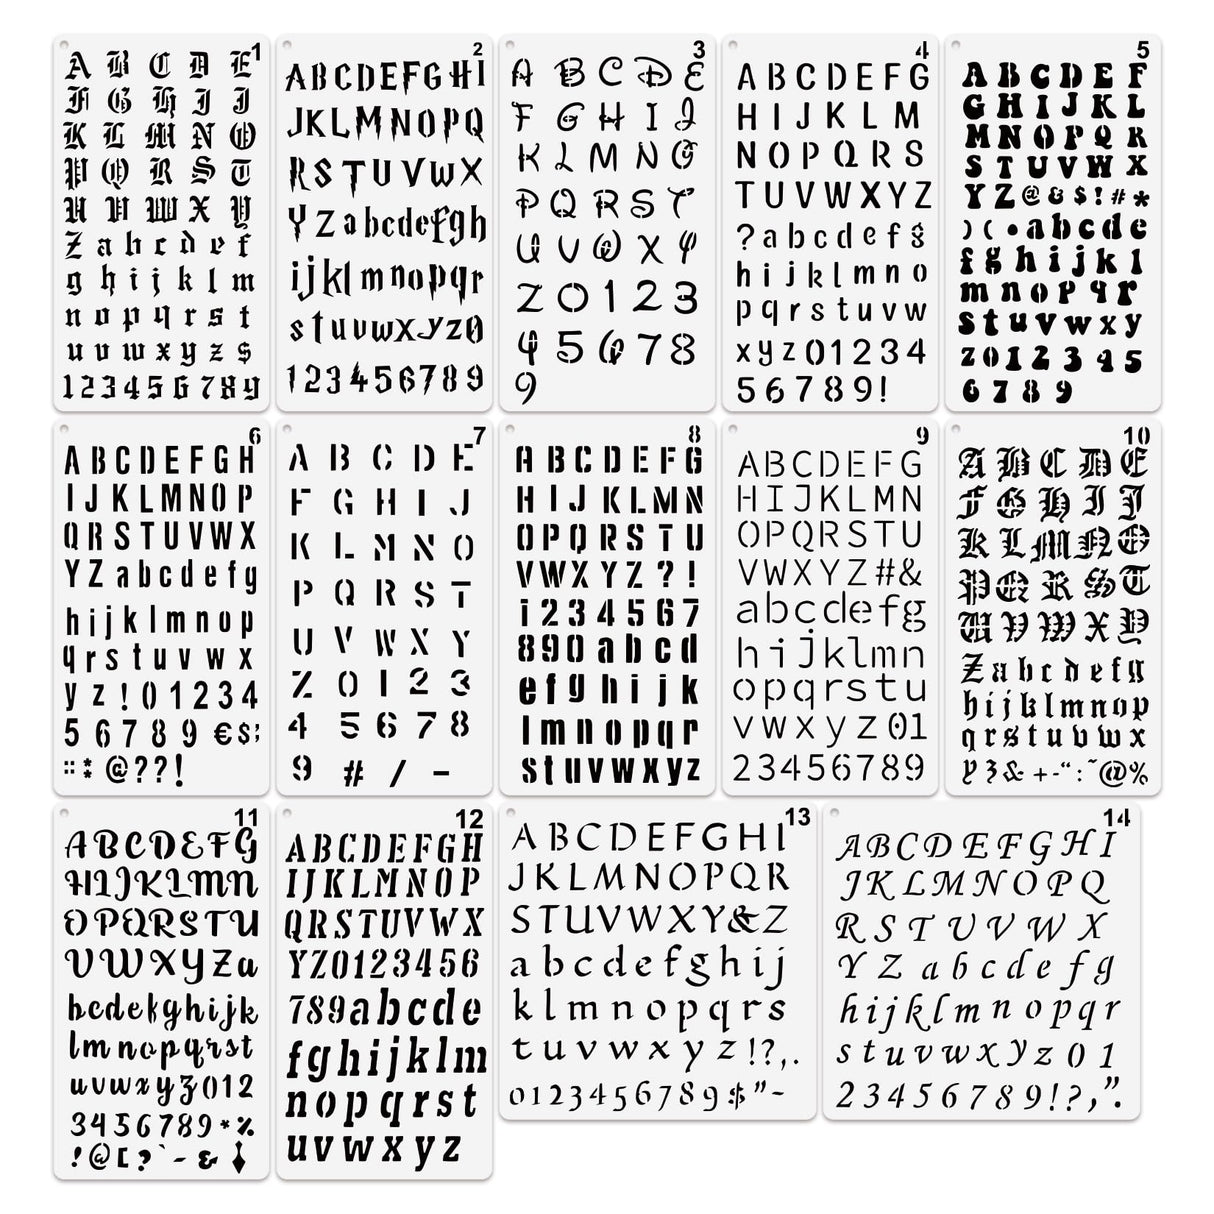 1
A B C D E
F G H I J
K L M N O
P Q R S T
U V W X Y
Z a b c d e f
g h i j k l m
n o p q r s t
u v w x y z $
1 2 3 4 5 6 7 8 9
2
A B C D E F G H I
J K L M N O P Q
R S T U V W X
Y Z a b c d e f g h
i j k l m n o p q r
s t u v w x y z 0
1 2 3 4 5 6 7 8 9
3
A B C D E
F G H I J
K L M N O
P Q R S T
U V W X Y
Z O 1 2 3
4 5 6 7 8
9
4
A B C D E F G
H I J K L M
N O P Q R S
T U V W X Y Z
? a b c d e f g
h i j k l m n o
p q r s t u v w
x y z 0 1 2 3 4
5 6 7 8 9 !
5
A B C D E F
G H I J K L
M N O P Q R
S T U V W X
Y Z @ & $ ! # *
) ( • a b c d e
f g h i j k l
m n o p q r
s t u v w x y
z 0 1 2 3 4 5
6 7 8 9
6
A B C D E F G H
I J K L M N O P
Q R S T U V W X
Y Z a b c d e f g
h i j k l m n o p
q r s t u v w x
y z ! 0 1 2 3 4
5 6 7 8 9 € $ ;
:: * @ ? ? !
7
A B C D E
F G H I J
K L M N O
P Q R S T
U V W X Y
Z 0 1 2 3
4 5 6 7 8
9 # / -
8
A B C D E F G
H I J K L M N
O P Q R S T U
V W X Y Z ? !
1 2 3 4 5 6 7
8 9 0 a b c d
e f g h i j k
l m n o p q r
s t u v w x y z
9
A B C D E F G
H I J K L M N
O P Q R S T U
V W X Y Z # &
a b c d e f g
h i j k l m n
o p q r s t u
v w x y z 0 1
2 3 4 5 6 7 8 9
10
A B C D E
F G H I J
K L M N O
P Q R S T
U V W X Y
Z a b c d e f g
h i j k l m n o p
q r s t u v w x
y z & + - “ : ~ @ %
11
A B C D E F G
H I J K L M N
O P Q R S T U
V W X Y Z a
b c d e f g h i j k
l m n o p q r s t
u v w x y z 0 1 2
3 4 5 6 7 8 9 * %
! @ [ ? ` ~ & ♦
12
A B C D E F G H
I J K L M N O P
Q R S T U V W X
Y Z 0 1 2 3 4 5 6
7 8 9 a b c d e
f g h i j k l m
n o p q r s t
u v w x y z
13
A B C D E F G H I
J K L M N O P Q R
S T U V W X Y & Z
a b c d e f g h i j
k l m n o p q r s
t u v w x y z ! ? , .
0 1 2 3 4 5 6 7 8 9 $ ” ~
14
A B C D E F G H I
J K L M N O P Q
R S T U V W X
Y Z a b c d e f g
h i j k l m n o p q r
s t u v w x y z 0 1
2 3 4 5 6 7 8 9 ! ? , ” .